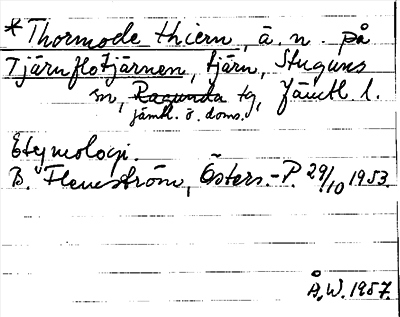 *Thormode thiern, ä. n. på
Tjärnflotjärnen, tjärn, Stuguns
sn, Ragunda tg, Jämtl. l.
jämtl. ö. doms.
Etymologi.
B. Flemström, Östers.-P. 29/10 1953.
Å.W. 1957.